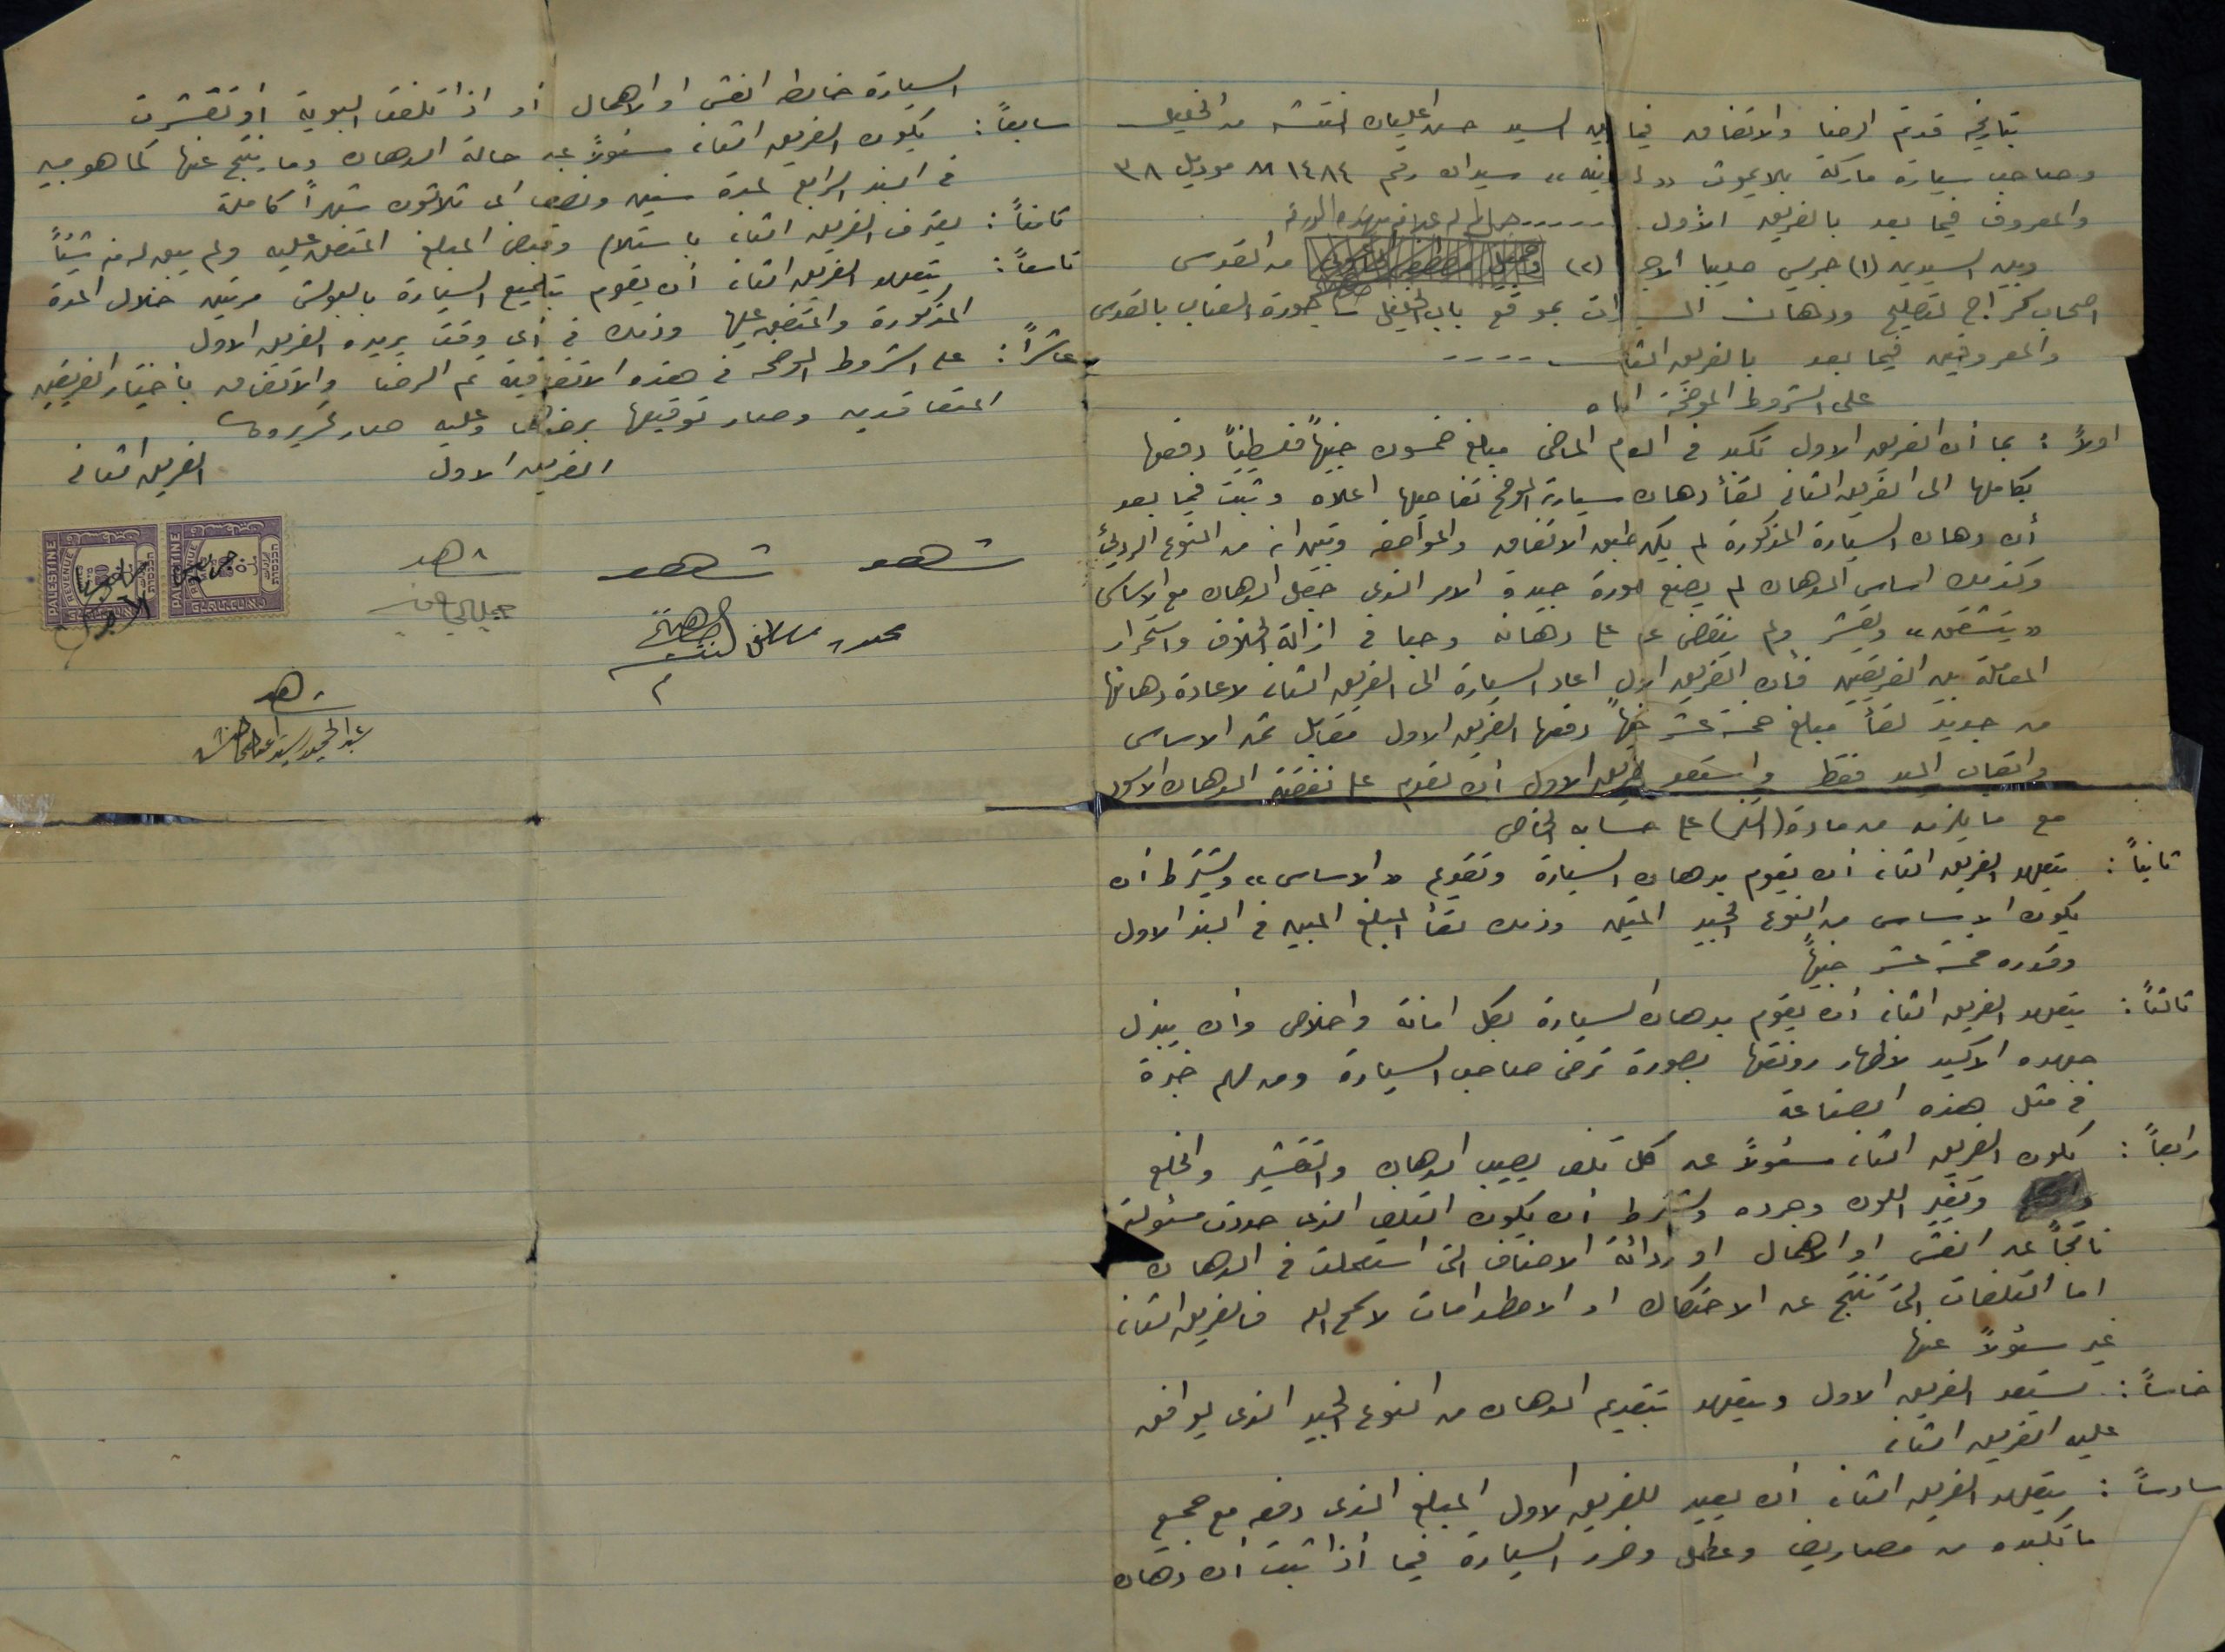 بتاريخه قد تم الرضا والاتفاق فيما بين السيد حسن عليان النتشه من الخليل
وصاحب سيارة ماركة بلايموت سيدان رقم ١٤٨٤ M موديل ٣٨
والمعروف فيما بعد بالفريق الأول -----
وبين السيدين (١) جريس صليبا الاعرج (٢) من القدس
اصحاب كراج لتصليح ودهان السيارات بموقع باب الخليل جورة العناب بالقدس
والمعروفين فيما بعد بالفريق الثاني -----
على الشروط الموضحة ادناه
اولاً : بما أن الفريق الاول تكبد في العام الماضي مبلغ خمسون جنيهاً فلسطينياً دفعها
بكاملها الى الفريق الثاني لقأ دهان سيارته الموضح تفاصيلها اعلاه وثبت فيما بعد
أن دهان السيارة المذكورة لم يكن طبق الاتفاق والمواصفه وتبين انه من النوع الرديئ
وكذلك اساس الدهان لم يصنع بصورة جيدة الامر الذي جعل الدهان مع الاساس
«يتشقق» ويقشر ولم ينقضي عام على دهانه وحبا في ازالة الخلاف واستمرار
المعاملة بين الفريقين فأن الفريق الاول اعاد السيارة الى الفريق الثاني لاعادة دهانها
من جديد لقأ مبلغ خمسة عشر جنيهاً دفعها الفريق الاول مقابل ثمن الاساس
واتعاب اليد فقط واستعد الفريق الاول أن يقدم على نفقته الدهان الاسود
مع ما يلزمه من مادة (التنر) على حسابه الخاص
ثانياً : يتعهد الفريق الثاني أن يقوم بدهان السيارة وتقديم «الاساس» ويشترط أن
يكون الاساس من النوع الجيد المتين وذلك لقأ المبلغ المبين في البند الاول
وقدره خمسة عشر جنيهاً
ثالثاً : يتعهد الفريق الثاني أن يقوم بدهان السيارة بكل امانة واخلاص وأن يبذل
جهده الاكيد لاظهار رونقها بصورة ترضي صاحب السيارة ومن لهم خبرة
في مثل هذه الصناعة
رابعاً : يكون الفريق الثاني مسئولاً عن كل تلف يصيب الدهان والتقشير والخلع
وتغير اللون وجرده ويشترط أن يكون التلف الذي حددت مسئوليته
ناتجاً عن الغش او الاهمال او ردائة الاصناف التي استعملت في الدهان
اما التلفات التي تنتج عن الاحتكاك او الاصطدامات لا سمح الله فالفريق الثاني
غير مسئولاً عنها
خامساً : يستعد الفريق الاول ويتعهد بتقديم الدهان من النوع الجيد الذي يوافق
عليه الفريق الثاني
سادساً : يتعهد الفريق الثاني أن يعيد للفريق الاول المبلغ الذي دفعه مع جميع
ما تكبده من مصاريف وعطل وضرر السيارة فيما أذا ثبت ان دهان
السيارة خالطه الغش او الاهمال أو اذا تلفت البوية أو تقشرت
سابعاً : يكون الفريق الثاني مسئولاً عن حالة الدهان وما ينتج عنها كما هو مبين
في البند الرابع لمدة سنتين ونصف اي ثلاثون شهراً كاملة
ثامناً : يعترف الفريق الثاني باستلام وقبض المبلغ المتفق عليه ولم يبق له منه شيئاً
تاسعاً : يتعهد الفريق الثاني أن يقوم بتلميع السيارة بالبولش مرتين خلال المدة
المذكورة والمتفق عليها وذلك في أي وقت يريده الفريق الاول
عاشراً : على الشروط الموضحة في هذه الاتفاقية تم الرضا والاتفاق بأختيار الفريقين
المتعاقدين وصار توقيعها برضاهما وعليه صار تحريره
الفريق الاول
الفريق الثاني
شاهد
شاهد
شاهد
PALESTINE
REVENUE
PALESTINE
REVENUE
شاهد